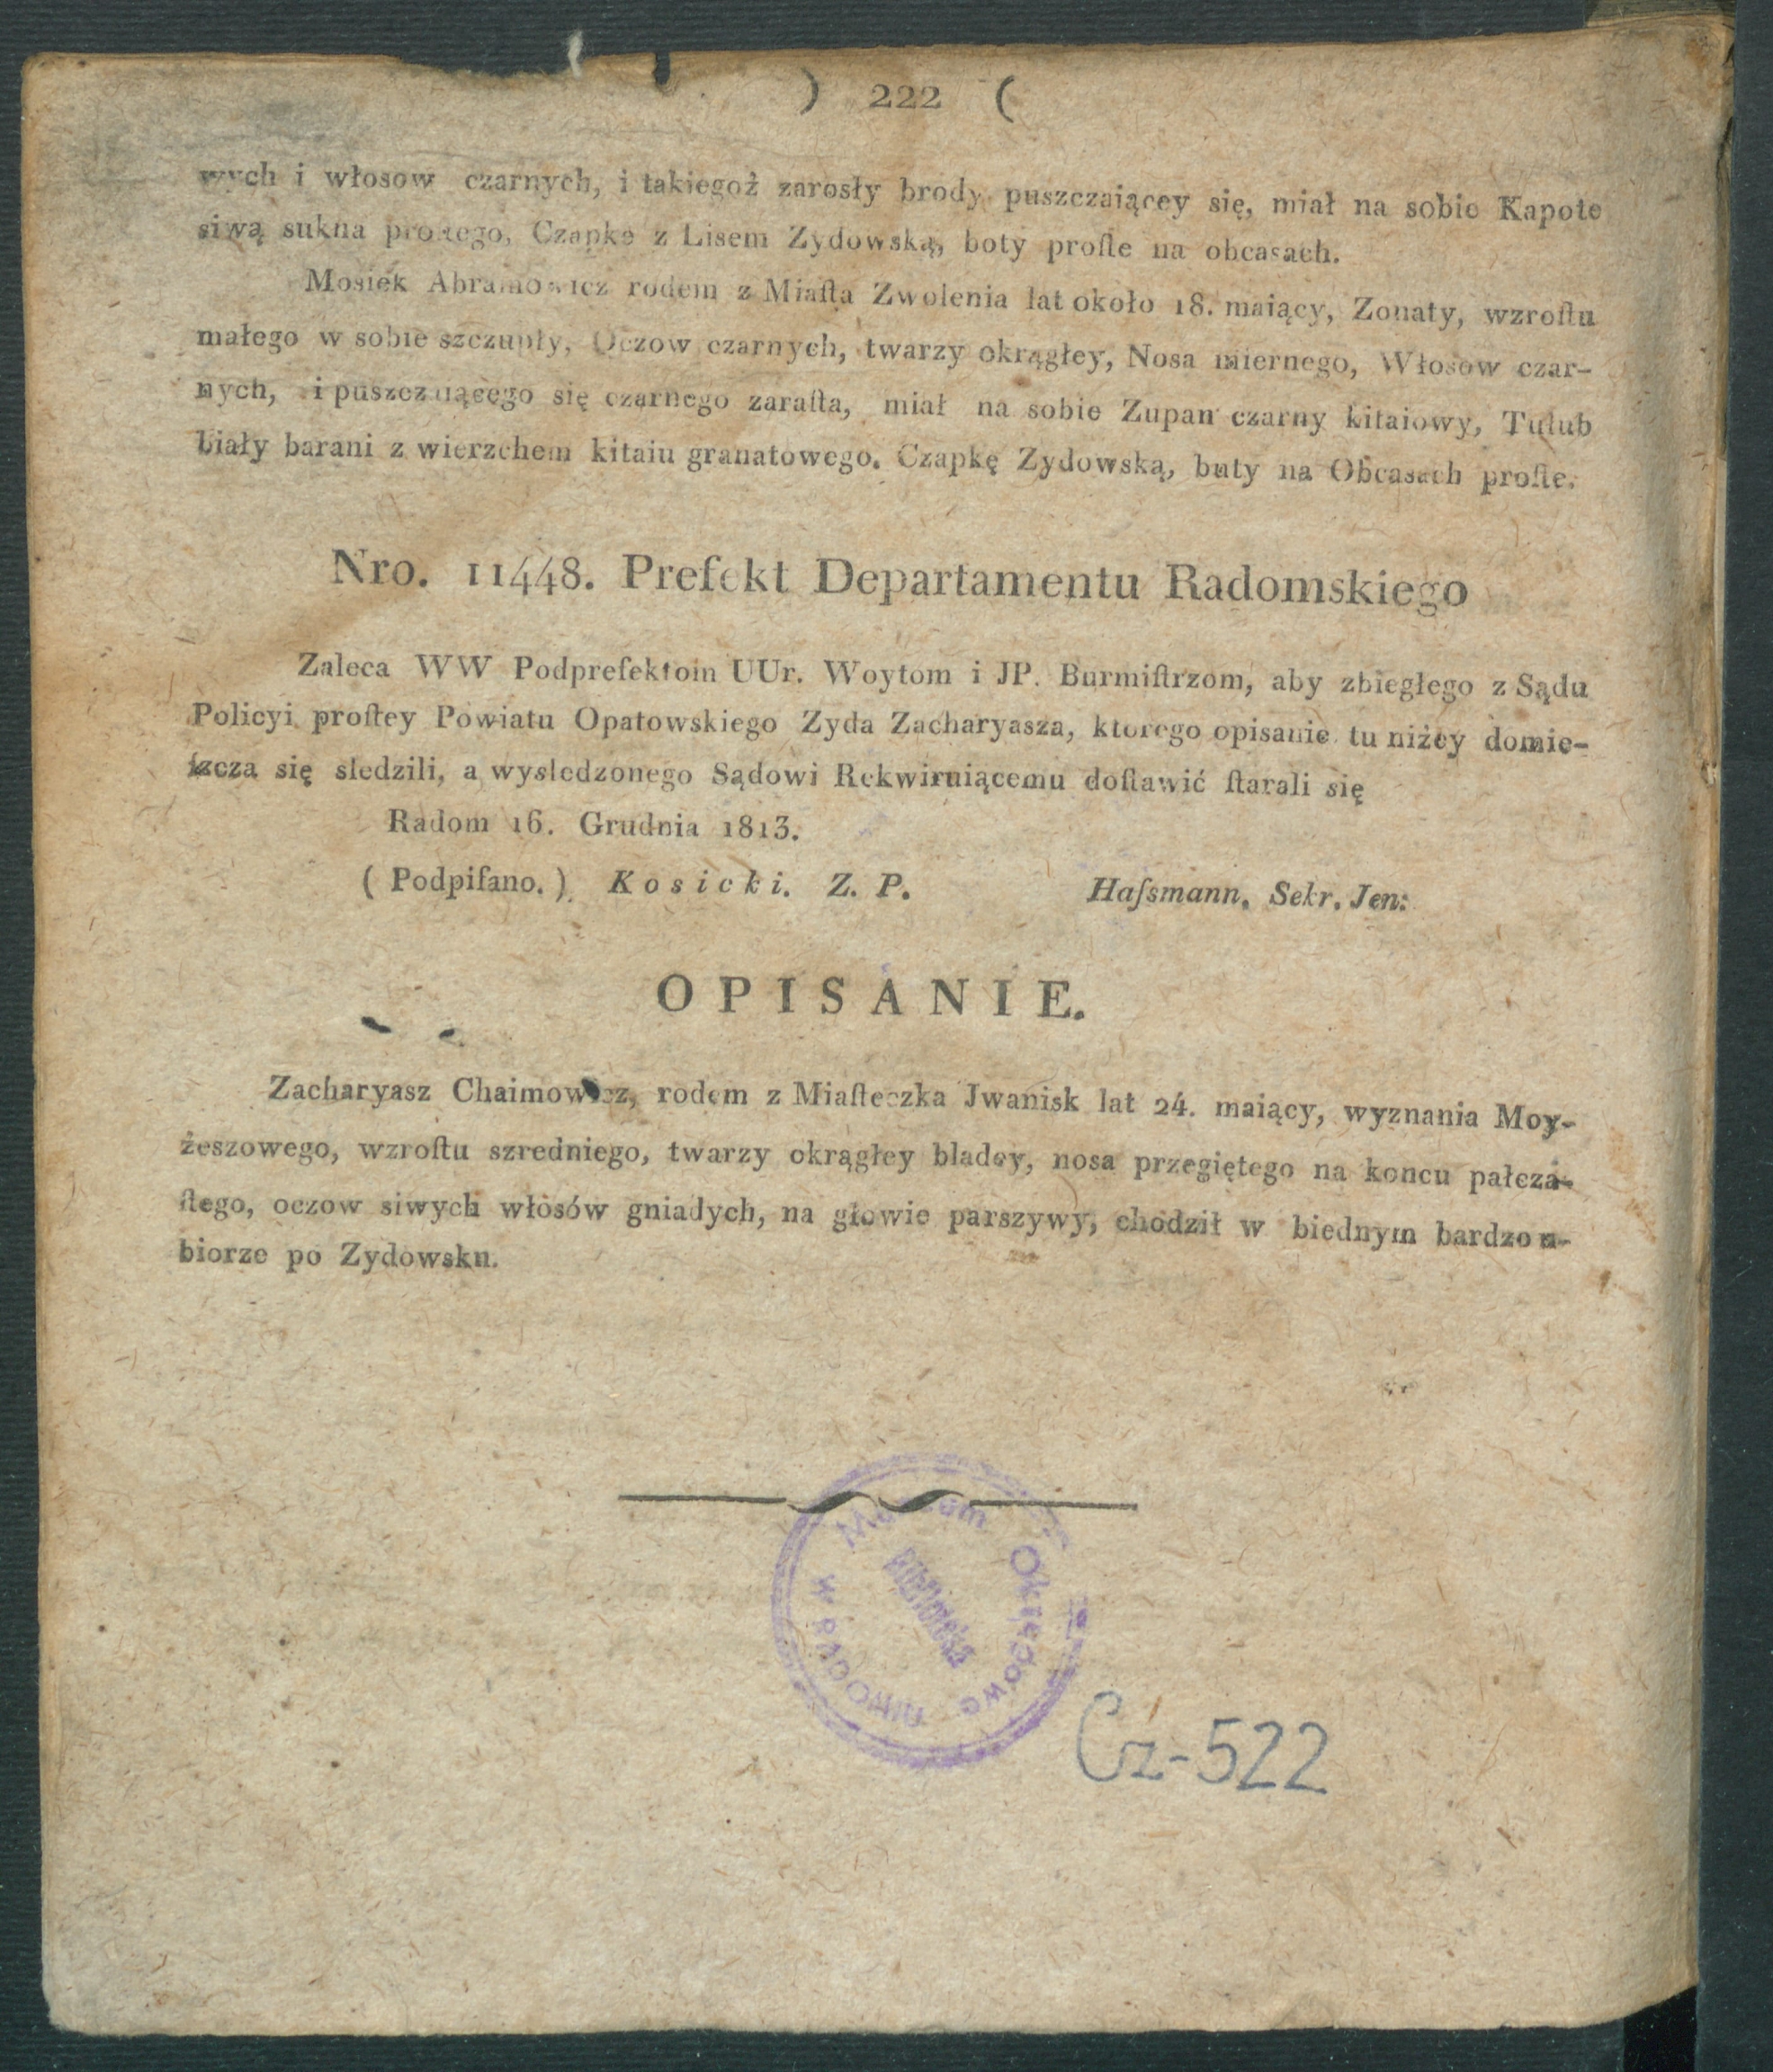 ) 222 (
wych i włosow czarnych, i takiegoż zarosły brody puszczaiącey się, miał na sobie Kapote
siwą sukna prostego, Czapke z Lisem Zydowską, boty proste na obcasach.
Mosiek Abramowicz rodem z Miasta Zwolenia lat około 18. maiący, Zonaty, wzrostu
małego w sobie szczupły, Oczow czarnych, twarzy okrągłey, Nosa miernego, Włosow czar-
nych, i puszczaiącego się czarnego zarasta, miał na sobie Zupan czarny kitaiowy, Tulub
biały barani z wierzchem kitaiu granatowego. Czapkę Zydowską, buty na Obcasach proste.
Nro. 11448. Prefekt Departamentu Radomskiego
Zaleca WW Podprefektom UUr. Woytom i JP. Burmistrzom, aby zbiegłego z Sądu
Policyi prostey Powiatu Opatowskiego Zyda Zacharyasza, ktorego opisanie tu niżey domie-
szcza się sledzili, a wysledzonego Sądowi Rekwiruiącemu dostawić starali się
Radom 16. Grudnia 1813.
( Podpiſano. ) Kosicki. Z. P. Haſsmann. Sekr. Jen:
OPISANIE.
Zacharyasz Chaimowicz, rodem z Miasteczka Jwanisk lat 24. maiący, wyznania Moy-
żeszowego, wzrostu szredniego, twarzy okrągłey bladey, nosa przegiętego na koncu pałcza-
stego, oczow siwych włosów gniadych, na głowie parszywy, chodził w biednym bardzo u-
biorze po Zydowsku.
Muzeum Okręgowe
w RADOMIU
Biblioteka
Cz-522